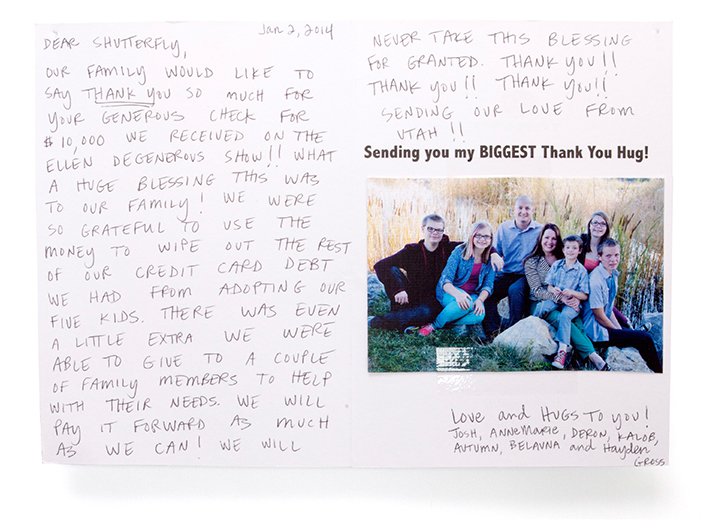 Jan 2, 2014
DEAR SHUTTERFLY,
OUR FAMILY WOULD LIKE TO
SAY THANK YOU SO MUCH FOR
YOUR GENEROUS CHECK FOR
$10,000 WE RECEIVED ON THE
ELLEN DEGENEROUS SHOW!! WHAT
A HUGE BLESSING THIS WAS
TO OUR FAMILY! WE WERE
SO GRATEFUL TO USE THE
MONEY TO WIPE OUT THE REST
OF OUR CREDIT CARD DEBT
WE HAD FROM ADOPTING OUR
FIVE KIDS. THERE WAS EVEN
A LITTLE EXTRA WE WERE
ABLE TO GIVE TO A COUPLE
OF FAMILY MEMBERS TO HELP
WITH THEIR NEEDS. WE WILL
PAY IT FORWARD AS MUCH
AS WE CAN! WE WILL
NEVER TAKE THIS BLESSING
FOR GRANTED. THANK YOU!!
THANK YOU!! THANK YOU!!
SENDING OUR LOVE FROM
UTAH!!
Sending you my BIGGEST Thank You Hug!
Love and HUGS TO YOU!
JOSH, ANNEMARIE, DERON, KALOB,
AUTUMN, BELAVNA and Hayden
GROSS